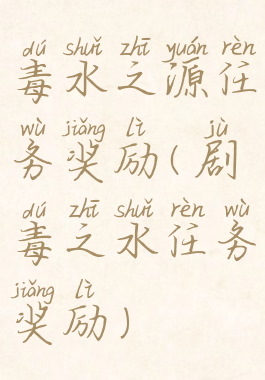 dú shuǐ zhī yuán rèn
毒水之源任
wù jiǎng lì jù
务奖励(剧
dú zhī shuǐ rèn wù
毒之水任务
jiǎng lì
奖励)